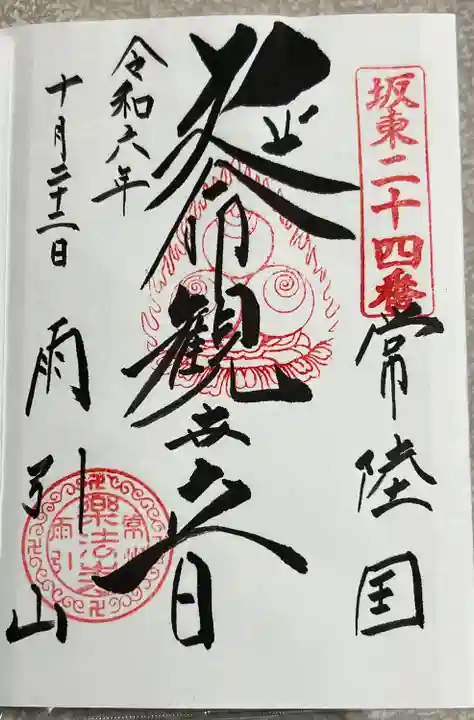 坂東二十四番
常陸国
延命観世音
令和六年
十月二十二日
雨引山
常州
樂法寺
雨引